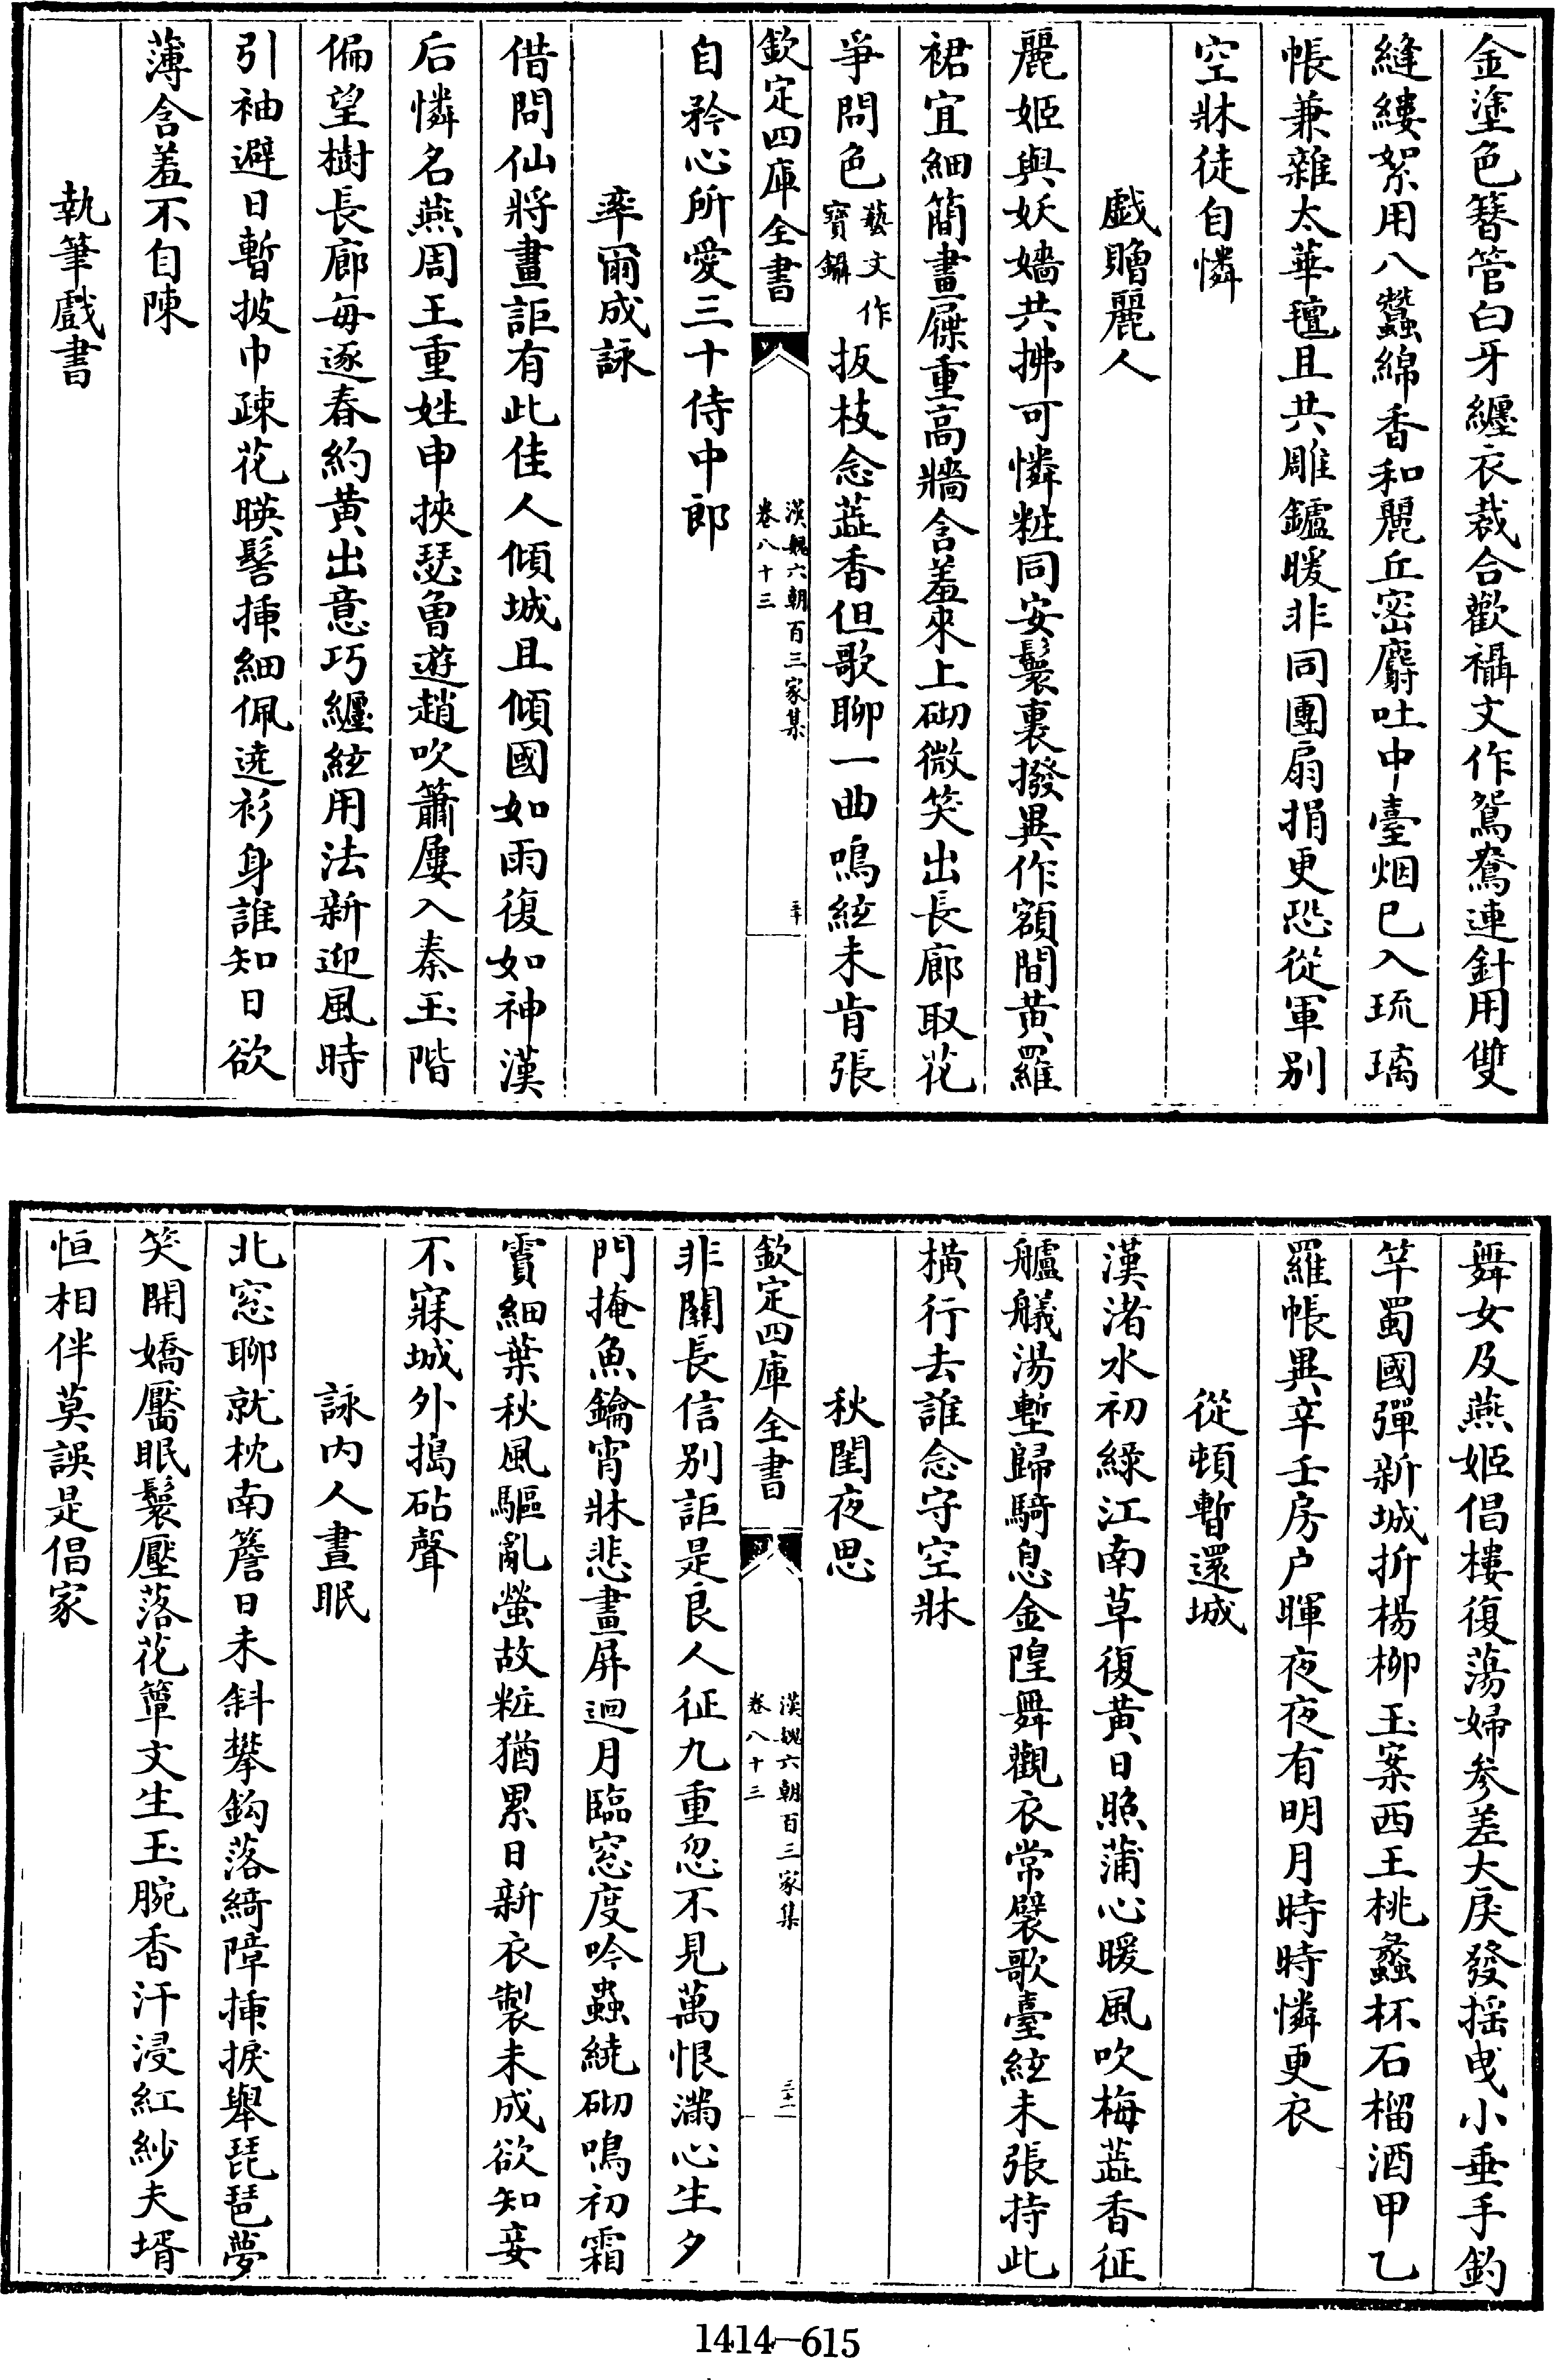 金塗色簪管白牙纏衣裁合歡襵文作鴛鴦連針用雙
縫縷絮用八蠶綿香和麗丘密麝吐中臺烟已入琉璃
帳兼雜太華氊且共雕鑪暖非同團扇捐更恐從軍别
空牀徒自憐
戲贈麗人
麗姬與妖嬙共拂可憐粧同安鬟裏撥異作額間黄羅
裙宜細簡畫屧重高牆含羞來上砌微笑出長廊取花
爭問色藝文作寶鑷扳枝念蕋香但歌聊一曲鳴絃未肯張
欽定四庫全書
漢魏六朝百三家集
卷八十三
三十
自矜心所愛三十侍中郎
率爾成詠
借問仙將畫詎有此佳人傾城且傾國如雨復如神漢
后憐名燕周王重姓申挾瑟曾遊趙吹簫屢入秦玉階
偏望樹長廊每逐春約黄出意巧纒絃用法新迎風時
引袖避日暫披巾疎花映髻插細佩遶衫身誰知日欲
薄含羞不自陳
執筆戲書
舞女及燕姬倡樓復蕩婦參差大戾發摇曵小垂手釣
竿蜀國彈新城折楊柳玉案西王桃蠡杯石榴酒甲乙
羅帳異辛壬房户暉夜夜有明月時時憐更衣
從頓暫還城
漢渚水初綠江南草復黄日照蒲心暖風吹梅蕋香征
艫艤湯塹歸騎息金隍舞觀衣常襞歌臺絃未張持此
橫行去誰念守空牀
秋閨夜思
欽定四庫全書
漢魏六朝百三家集
卷八十三
三十一
非關長信别詎是良人征九重忽不見萬恨滿心生夕
門掩魚鑰宵牀悲畫屏迴月臨窓度吟蟲繞砌鳴初霜
賣細葉秋風驅亂螢故粧猶累日新衣製未成欲知妾
不寐城外搗砧聲
詠内人晝眠
北窓聊就枕南簷日未斜攀鈎落綺障插捩舉琵琶夢
笑開嬌靨眠鬟壓落花簟文生玉腕香汗浸紅紗夫壻
恒相伴莫誤是倡家
1414—615